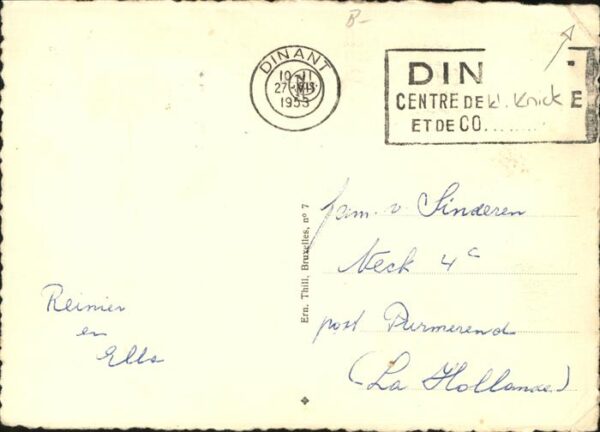 B-
DINANT
10-11
27 VII
1953
DIN
CENTRE DE kl. Knick E
ET DE CO........
Fam. v. Sinderen
Neck 4c
post Purmerend
(La Hollande)
Reinier
en
Ella
Ern. Thill, Bruxelles, nº 7